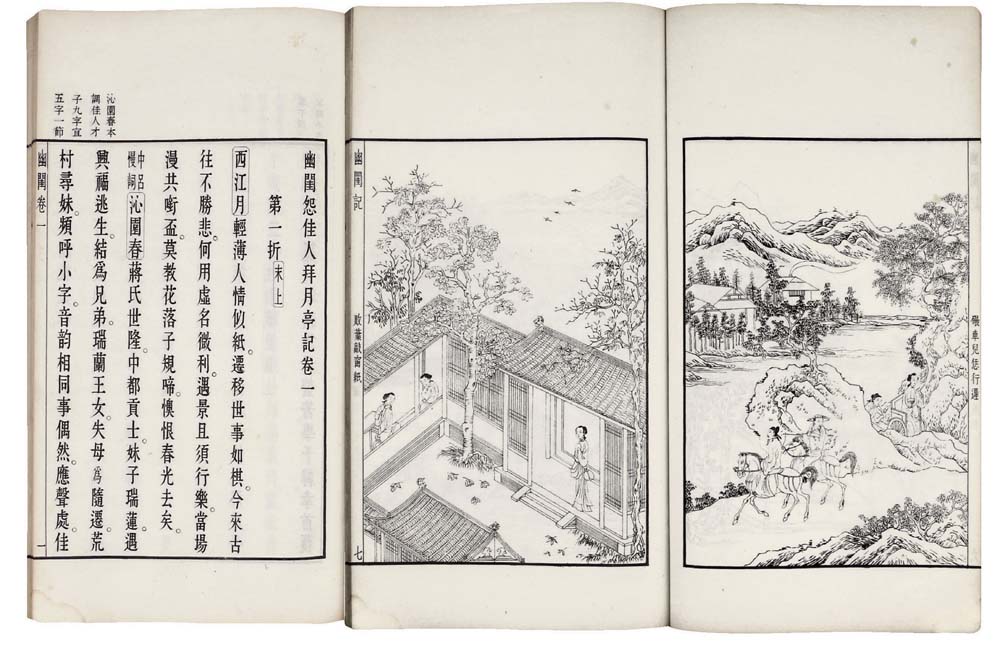 幽閨怨佳人拜月亭記卷一
第一折 末上
西江月輕薄人情似紙。遷移世事如棋。今來古
往不勝悲。何用虛名微利。遇景且須行樂。當場
漫共啣盃。莫教花落子規啼。懊恨春光去矣。
中呂慢詞沁園春蔣氏世隆。中都貢士。妹子瑞蓮遇
興福逃生。結爲兄弟。瑞蘭王女。失母爲隨遷。荒
村尋妹。頻呼小字。音韵相同事偶然。應聲處。佳
沁園春本
調佳人才
子九字宜
五字一節
幽閨卷一
一
幽閨記
敗葉敲窗紙
七
車兒恁行遲